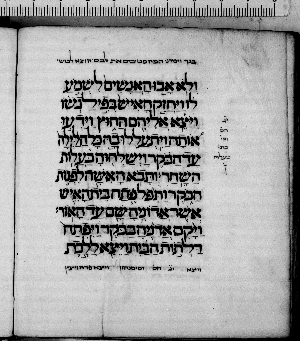 ולא אבו האנשים לשמע
לו ויחזק האיש בפילגשו
ויצא אליהם החוץ וידעו
אותה ויתעללו בה כל הלילה
עד הבקר וישלחוה בעלות
השחר ותבא האשה לפנות
הבקר ותפל פתח בית האיש
אשר אדוניה שם עד האור
ויקם אדניה בבקר ויפתח
דלתות הבית ויצא ללכת